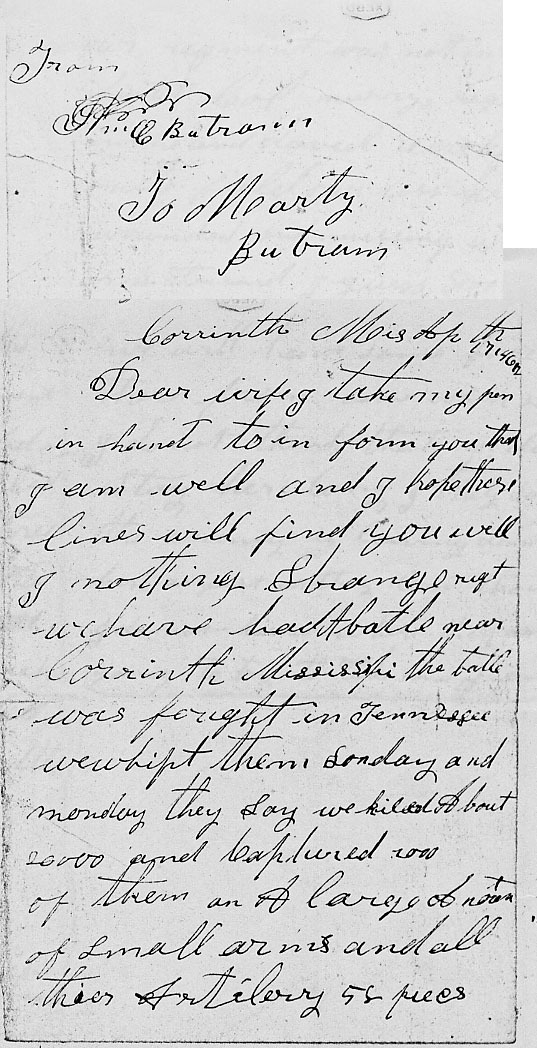 From
Wm C Butram
To Marty
Butram
Corrinth Mis Ap th
Dear wife I take my pen
in hand to in form you that
I am well and I hope these
lines will find you well
I nothing Strange
we have had A batle near
Corrinth Mississipi the batle
was fought in Tennessee
we whipt them Sonday and
monday they Say we kiled About
and Captured
of them an A large A
of Small arms and all
thier Artilery pieces